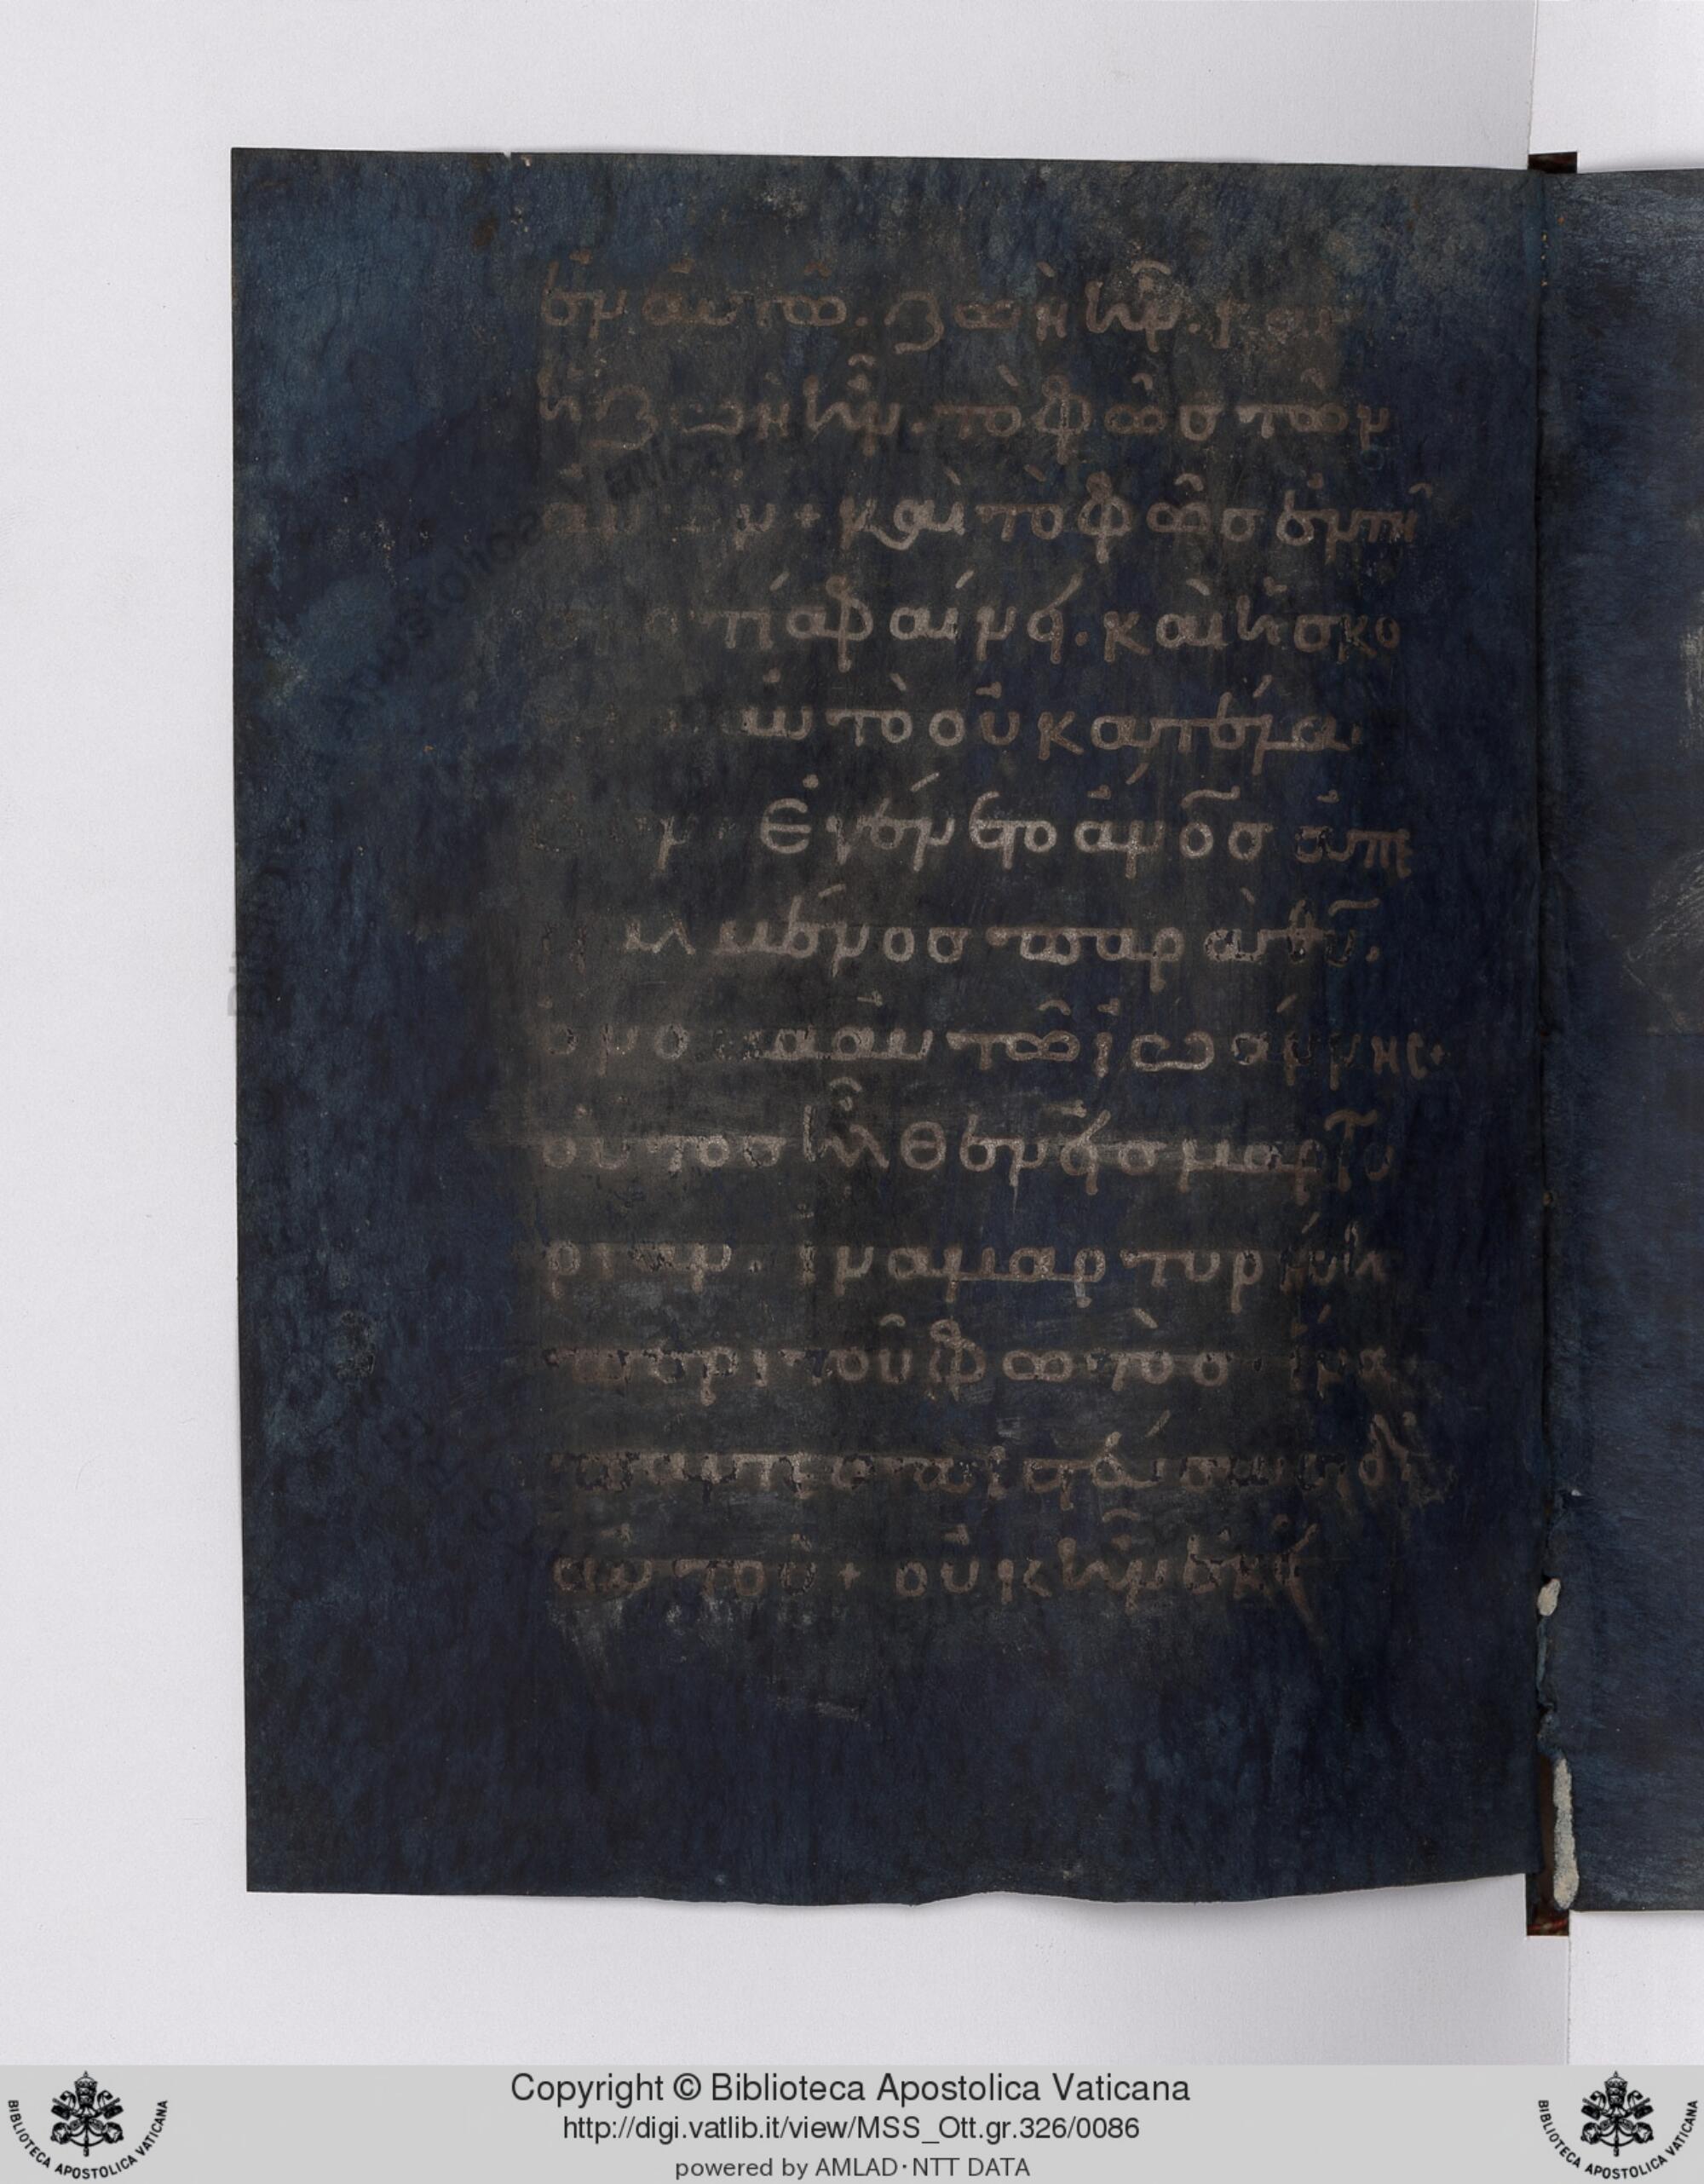 ἐν αὐτῶ. ζωὴ ἦν. και
ἡ ζωὴ ἦν. τὸ φῶσ τῶν
καὶ τὸ φῶσ ἐν τῆ
σκοτία φαίνει. καὶ ἡ σκο
αὐτὸ οὐ κατέλα
Ἐγένετο ἄν̅ο̅σ ἀπε
σταλμένοσ παρὰ θ̅υ̅.
ὄνομα αὐτῶ ἰωάννης+
οὗτοσ ἦλθεν εἰσ μαρτυ
ρίαν. ἵνα μαρτυρήση
περὶ τοῦ φωτὸσ. ἵνα
πάντεσ πιστεύσωσι δι
αὐτοῦ + οὐκ ἦν ἐκεῖ
Copyright © Biblioteca Apostolica Vaticana
http://digi.vatlib.it/view/MSS_Ott.gr.326/0086
powered by AMLAD·NTT DATA
BIBLIOTECA APOSTOLICA VATICANA
BIBLIOTECA APOSTOLICA VATICANA